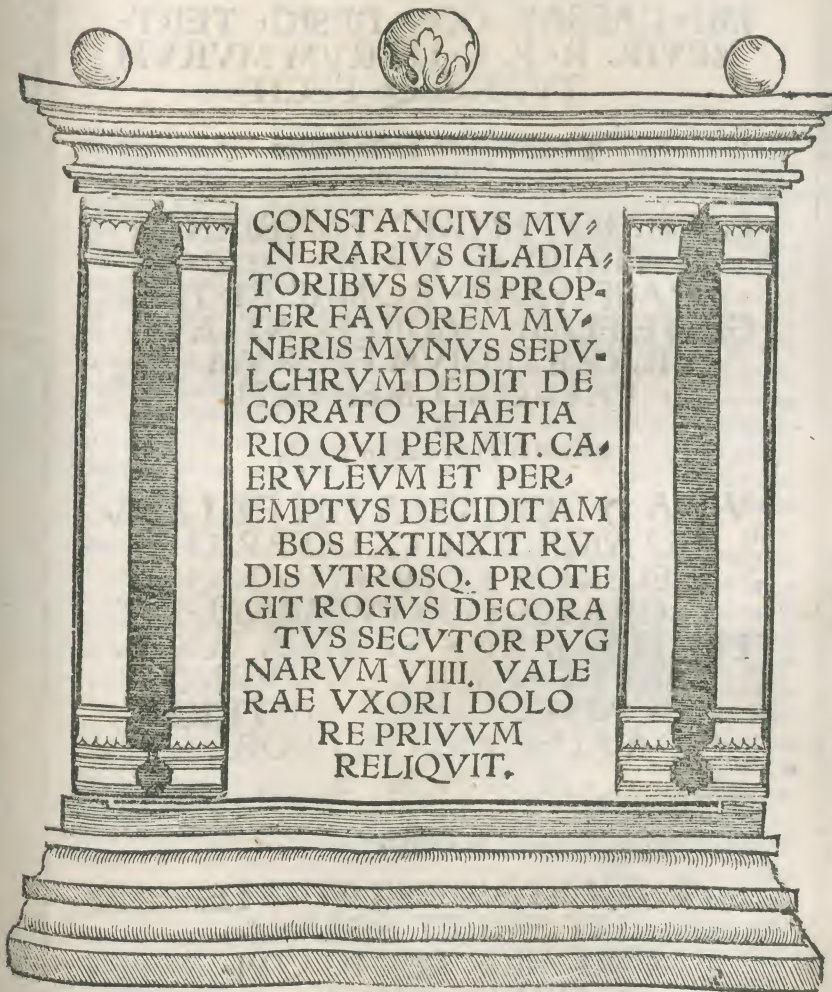 CONSTANCIVS MV⸗
NERARIVS GLADIA⸗
TORIBVS SVIS PROP-
TER FAVOREM MV⸗
NERIS MVNVS SEPV-
LCHRVM DEDIT DE
CORATO RHAETIA
RIO QVI PERMIT. CA⸗
ERVLEVM ET PER⸗
EMPTVS DECIDIT AM
BOS EXTINXIT RV
DIS VTROSQ. PROTE
GIT ROGVS DECORA
TVS SECVTOR PVG
NARVM VIIII. VALE
RAE VXORI DOLO
RE PRIVVM
RELIQVIT.